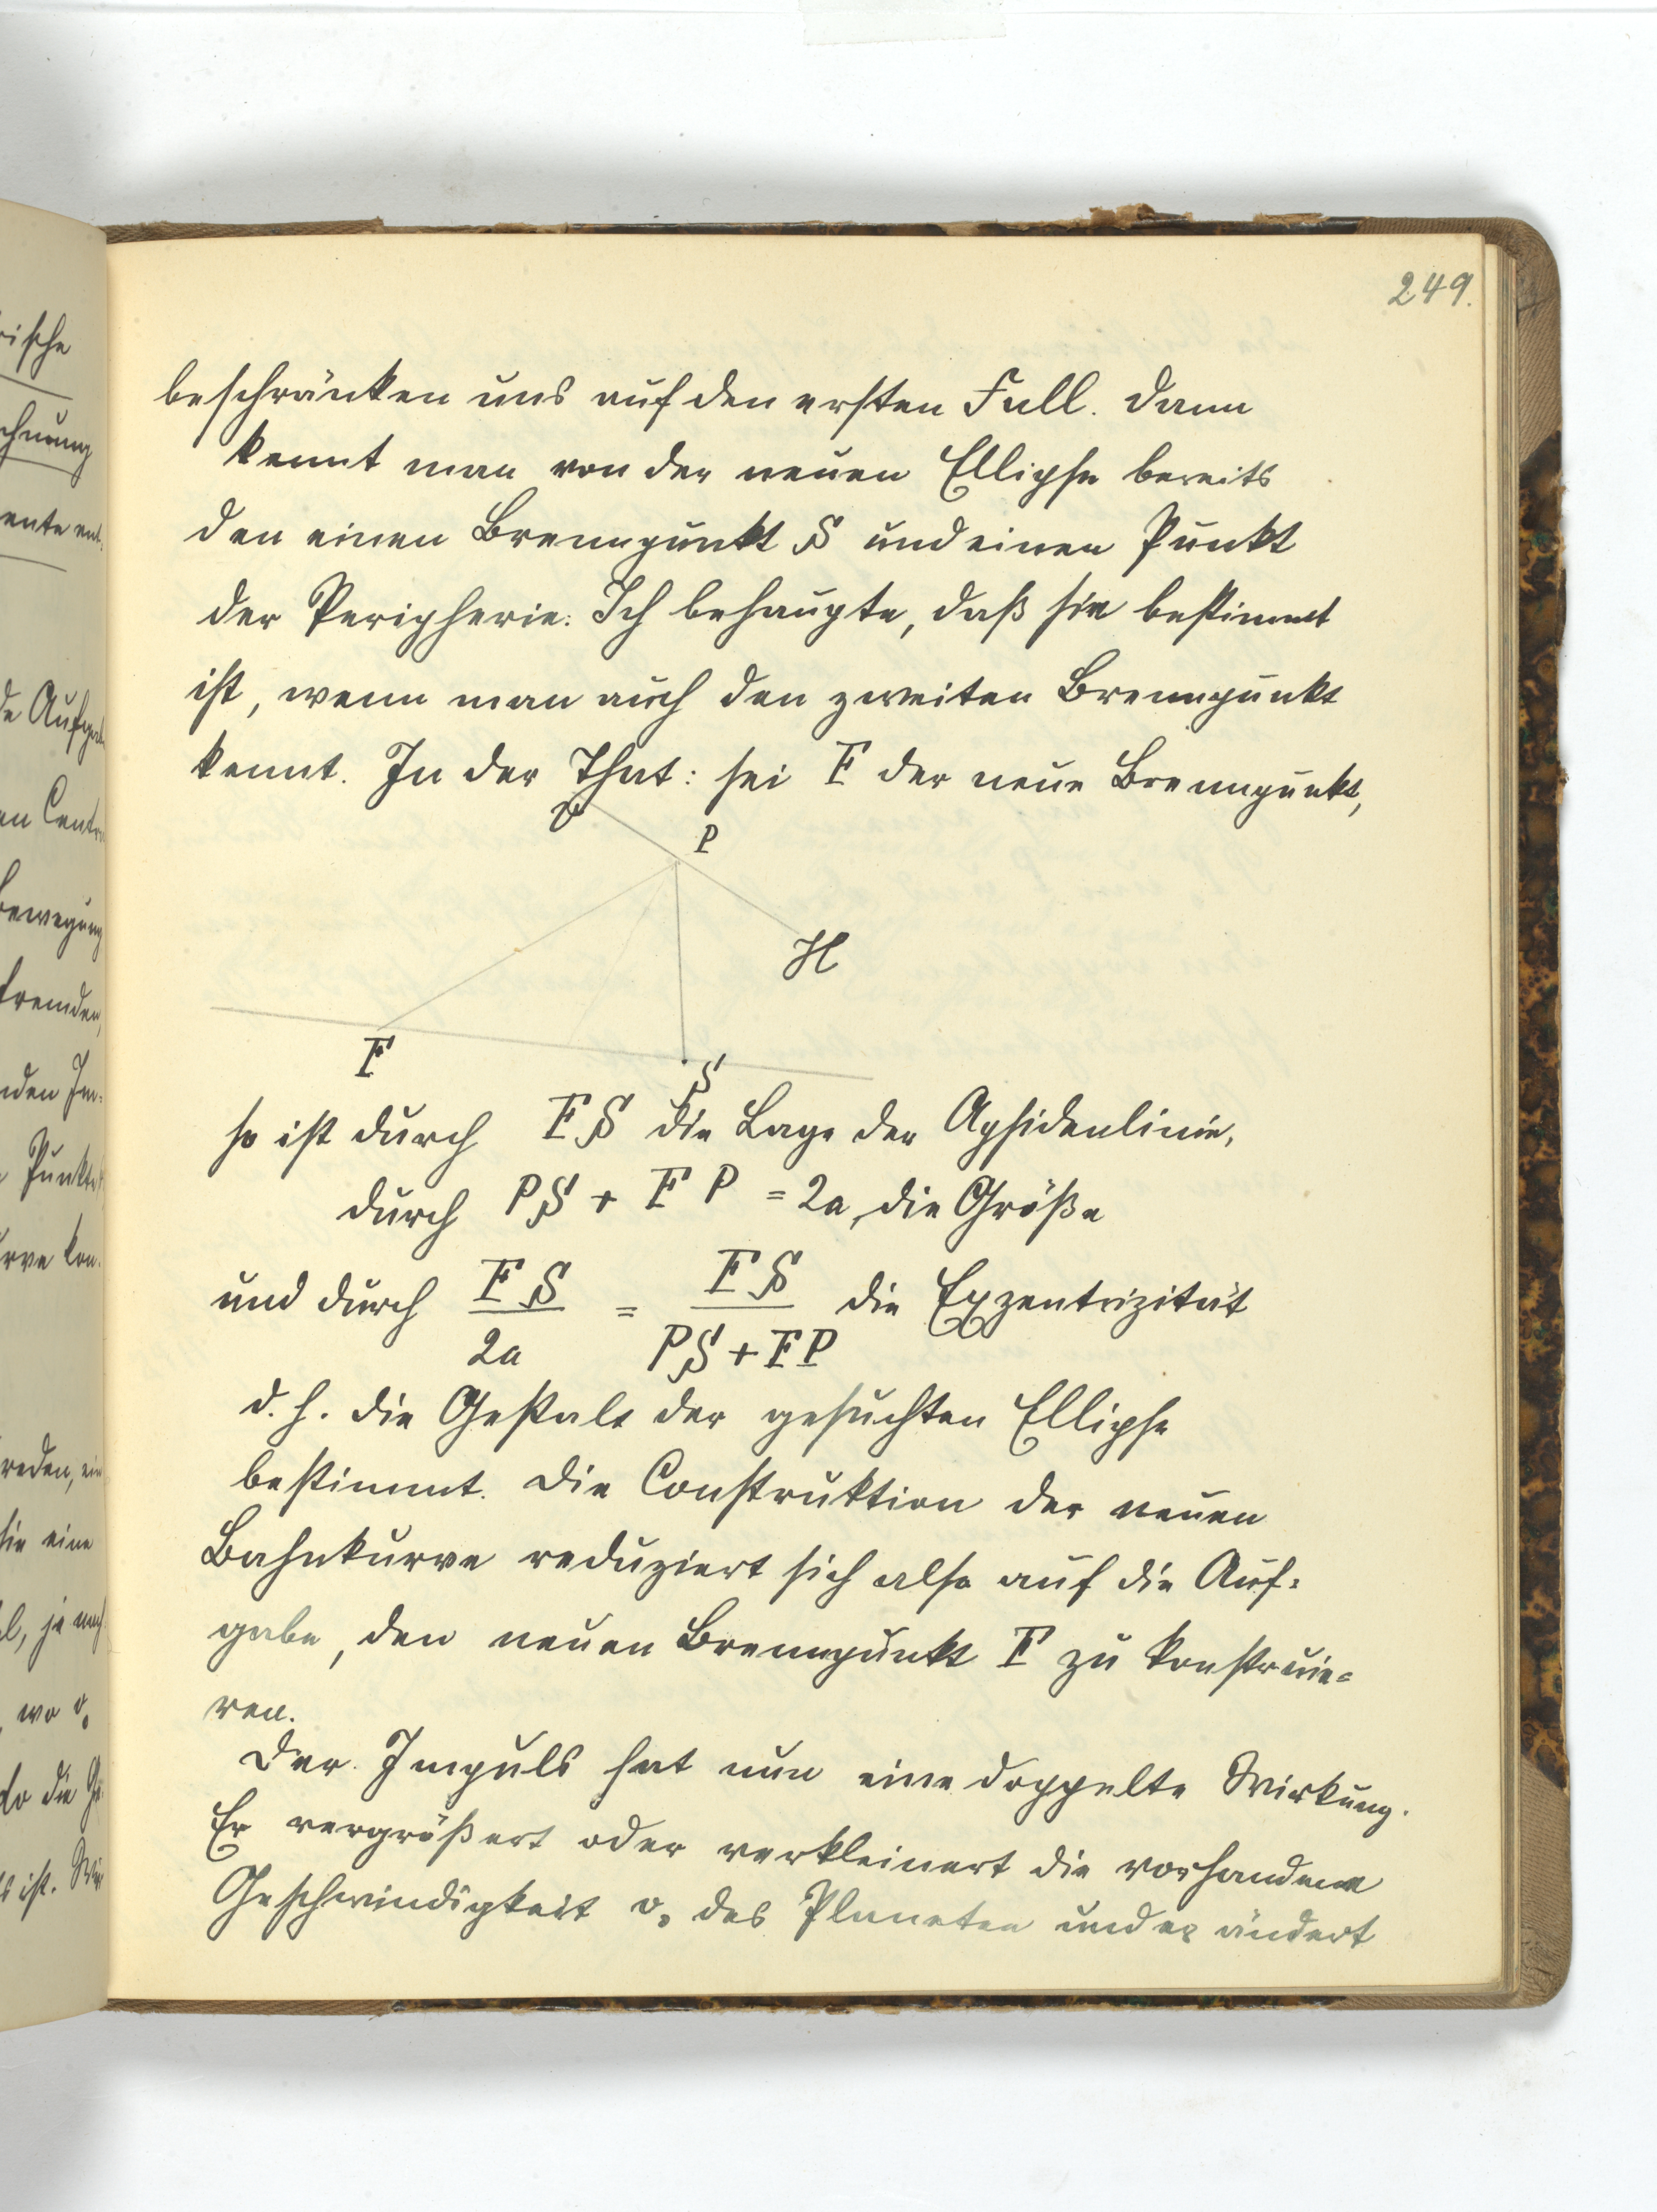 249.
beschränken uns auf den ersten Fall. Dann
kennt man von der neuen Ellipse bereits
den einen Brennpunkt S und einen Punkt
der Peripherie. Ich behaupte, daß sie bestimmt
ist, wenn man auch den zweiten Brennpunkt
kennt. In der That: sei F der neue Brennpunkt,
P
H
F
S
so ist durch FS die Lage der Apsidenlinie,
durch PS + FP = 2a, die Größe
und durch FS / 2a = FS / PS + FP die Exzentrizität
d. h. die Gestalt der gesuchten Ellipse
bestimmt. Die Construktion der neuen
Bahnkurve reduziert sich also auf die Auf-
gabe, den neuen Brennpunkt F zu konstruie-
ren.
Der Impuls hat nun eine doppelte Wirkung.
Er vergrößert oder verkleinert die vorhandene
Geschwindigkeit v₀ des Planeten und er ändert
rische
chnung
ente ent-
de Aufgabe
en Centr
Bewegung
fremden,
nden Im-
Punkte
urve kon-
reden, ein
sie eine
l, je nach
, wo v₀
so die
ist. Wir